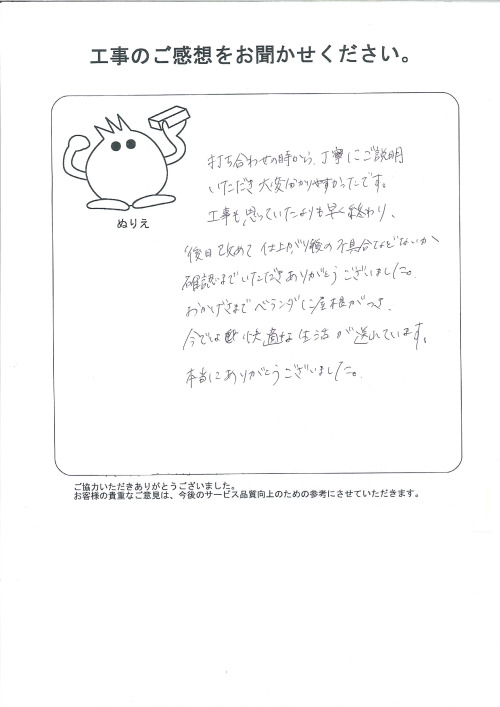 工事のご感想をお聞かせください。
ぬりえ
打ち合わせの時から、丁寧にご説明
いただき大変分かりやすかったです。
工事も思っていたよりも早く終わり、
後日改めて仕上がり後の不具合などないか
確認までいただきありがとうございました。
おかげさまでベランダに屋根がつき、
今では快適な生活が送れています。
本当にありがとうございました。
ご協力いただきありがとうございました。
お客様の貴重なご意見は、今後のサービス品質向上のための参考にさせていただきます。